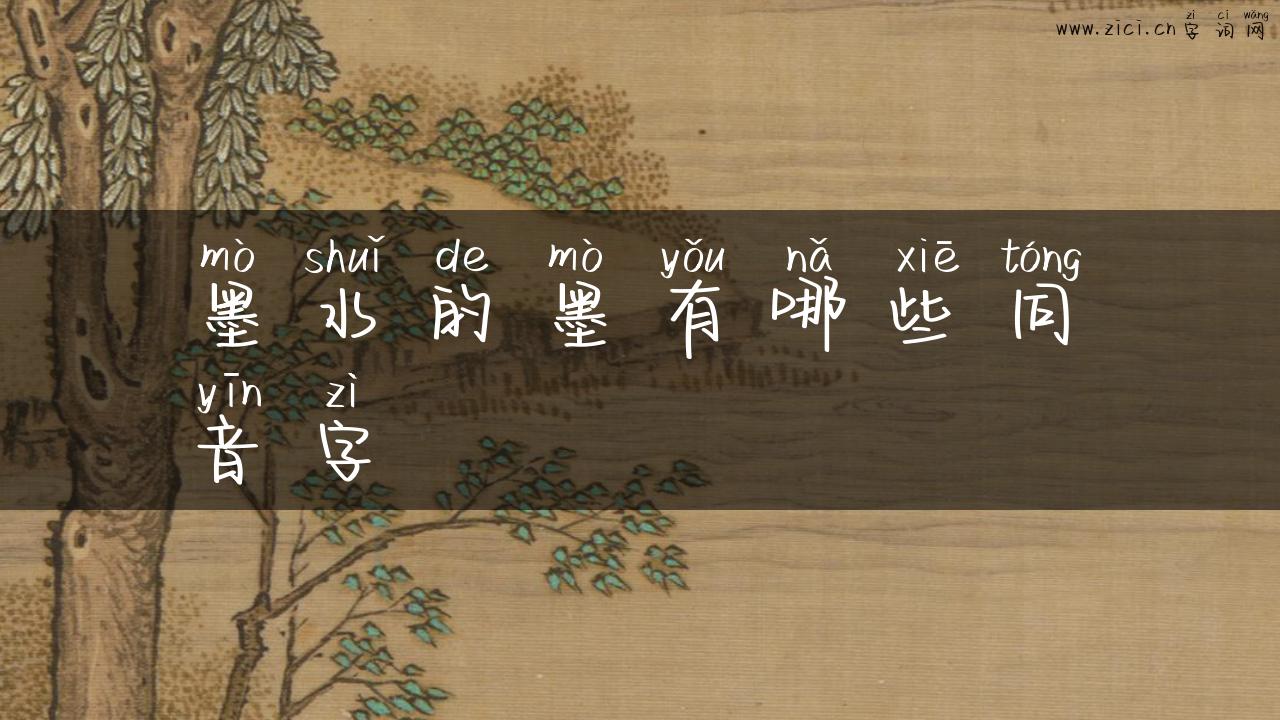 zì cí wǎng
www.zici.cn 字词网
mò shuǐ de mò yǒu nǎ xiē tóng
墨水的墨有哪些同
yīn zì
音字